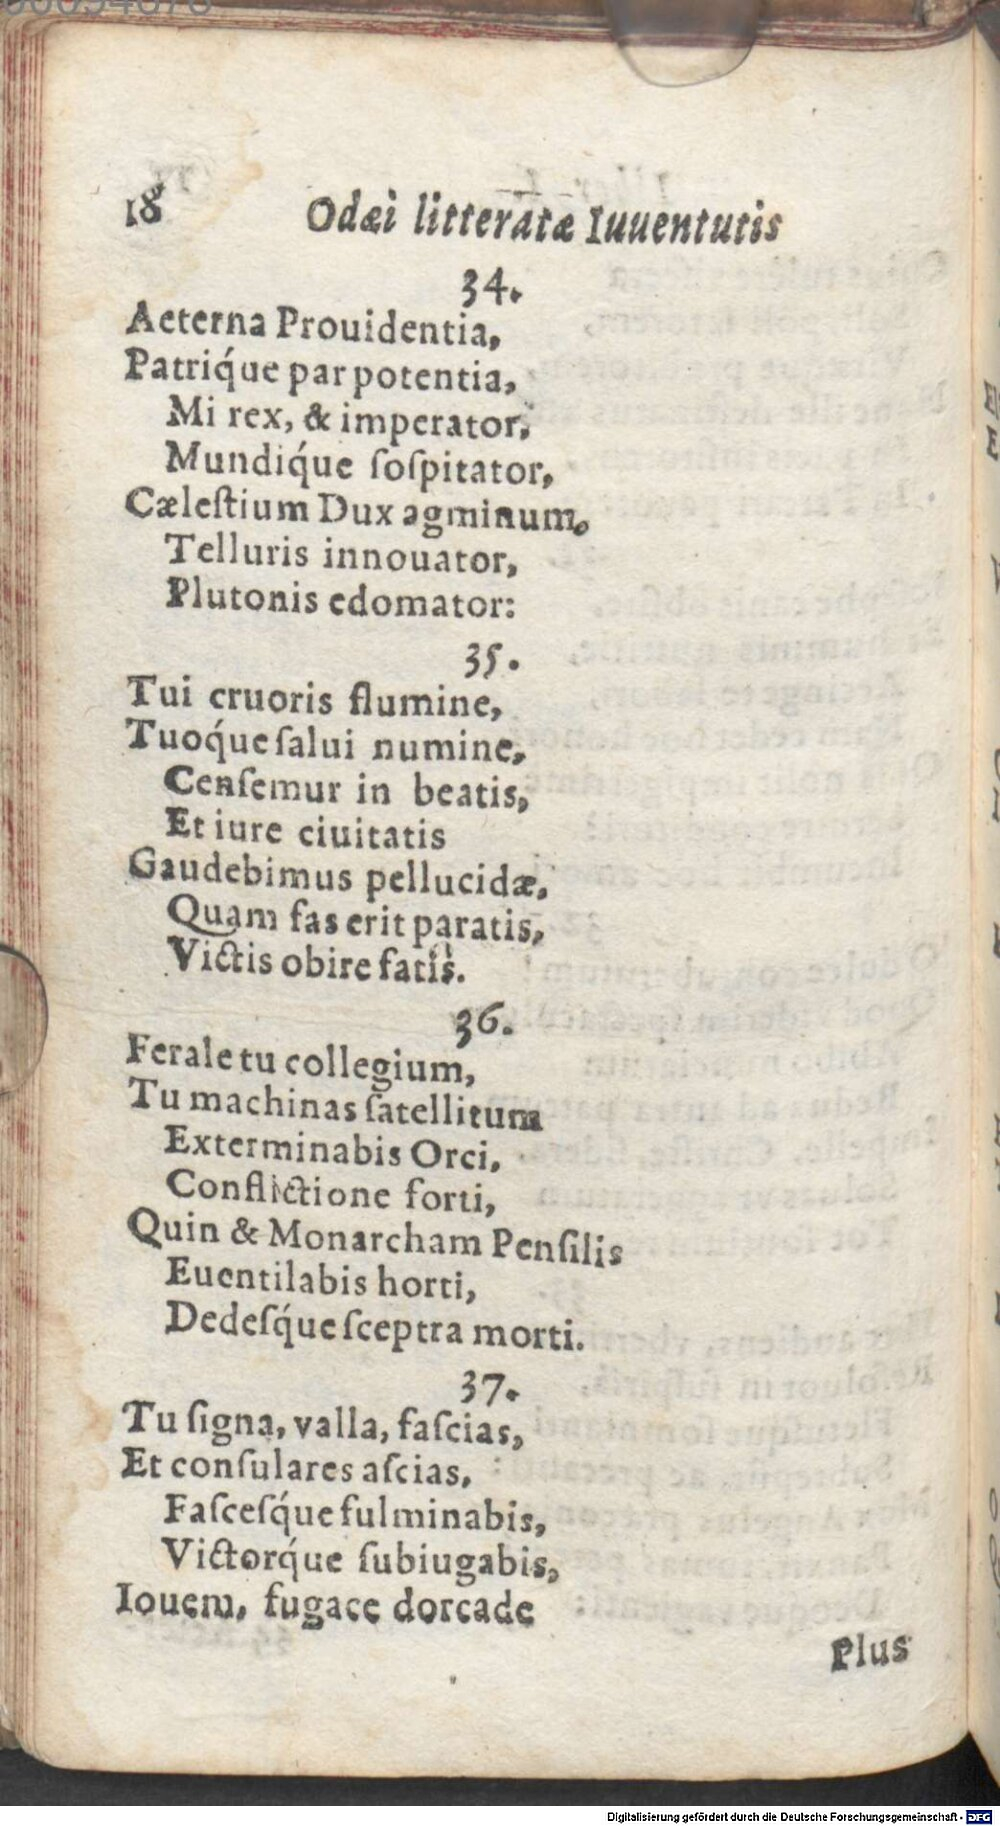 18 Odæi litteratæ Iuuentutis
34.
Aeterna Prouidentia,
Patriq́ue par potentia,
Mi rex, & imperator,
Mundiq́ue ſoſpitator,
Cæleſtium Dux agminum,
Telluris innouator,
Plutonis edomator:
35.
Tui cruoris flumine,
Tuoq́ue ſalui numine,
Cenſemur in beatis,
Et iure ciuitatis
Gaudebimus pellucidæ,
Quam fas erit paratis,
Victis obire fatis.
36.
Ferale tu collegium,
Tu machinas ſatellitum
Exterminabis Orci,
Conflictione forti,
Quin & Monarcham Penſilis
Euentilabis horti,
Dedeſq́ue ſceptra morti.
37.
Tu ſigna, valla, faſcias,
Et conſulares aſcias,
Faſceſq́ue fulminabis,
Victorq́ue ſubiugabis,
Iouem, fugace dorcade
Plus
Digitalisierung gefördert durch die Deutsche Forschungsgemeinschaft - DFG